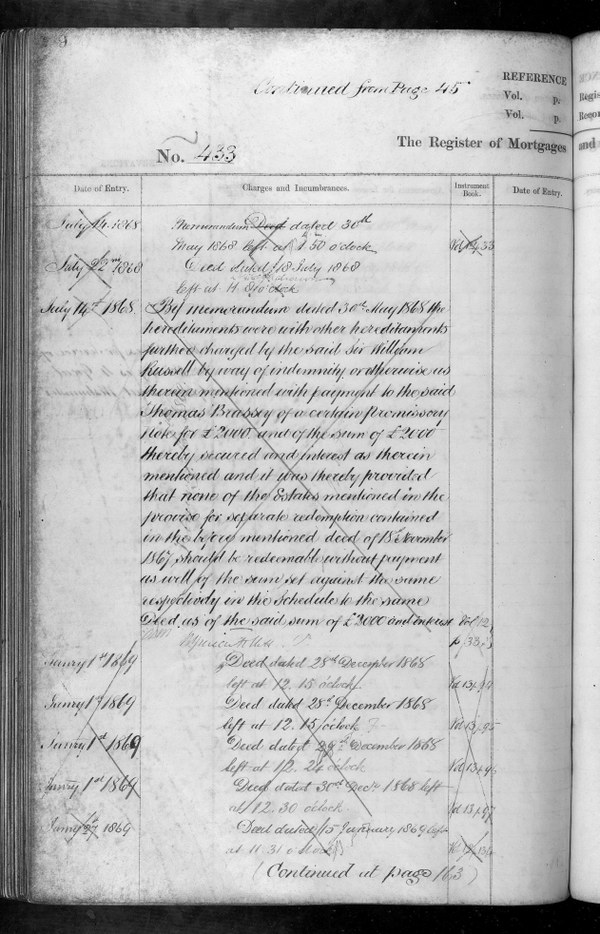 Continued from Page 45
REFERENCE
Vol. p.
Vol. p.
The Register of Mortgages
No. 433
Date of Entry.
Charges and Incumbrances.
Instrument Book.
Date of Entry.
July 14 1868
Memorandum Deed dated 30th
May 1868 left at 1 50 o'clock
July 22nd 1868
Deed dated 18 July 1868
left at
July 14th 1868
By memorandum dated 30th May 1868 the
hereditaments were with other hereditaments
further charged by the said Sir William
Russell by way of indemnity or otherwise as
therein mentioned with payment to the said
Thomas Brassey of a certain Promissory
Note for £2000 and of the sum of £2000
thereby secured and interest as therein
mentioned and it was thereby provided
that none of the Estates mentioned in the
proviso for separate redemption contained
in the before mentioned deed of 18th November
1867 should be redeemable without payment
as well of the sum set against the same
respectively in the Schedule to the same
Deed as of the said sum of £2000 and interest
Vol 12
p 33
Janry 1st 1869
Deed dated 28th December 1868
left at 12.15 o'clock
Janry 1st 1869
Deed dated 28th December 1868
left at 12.15 o'clock
Vol 13 p 95
Janry 1st 1869
Deed dated 28th December 1868
left at 12.24 o'clock
Vol 13 p 96
Janry 1st 1869
Deed dated 30th Decr 1868 left
at 12.30 o'clock
Vol 13 p 97
Janry 27 1869
Deed dated 15 January 1869 left
at 11.31 o'clock
(Continued at page 163)